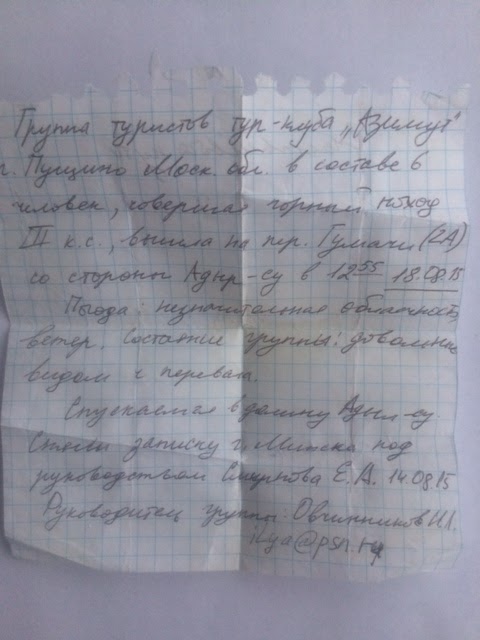 Группа туристов тур-клуба „Азимут"
г. Пущино Моск. обл. в составе 6
человек, совершая горный поход
III к.с., вышла на пер. Гумачи (2А)
со стороны Адыр-су в 12⁵⁵ 18.08.15
Погода: незначительная облачность
ветер. Состояние группы: довольны
видом с перевала.
Спускаемся в долину Адыл-су.
Сняли записку г. Минска под
руководством Смирнова Е.А. 14.08.15
Руководитель группы: Овчинников И.
ilya@psn.ru